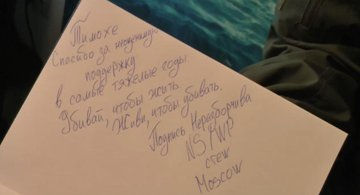 Тимохе
Спасибо за неценимую
поддержку
в самые тяжелые годы.
Убивай, чтобы жить
Живи, чтобы убивать.
Подпись Неразборчива
NS/WP
crew
Moscow